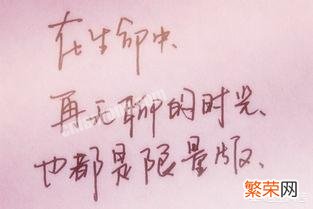 在生命中、
再无聊的时光、
也都是限量版、
繁荣网